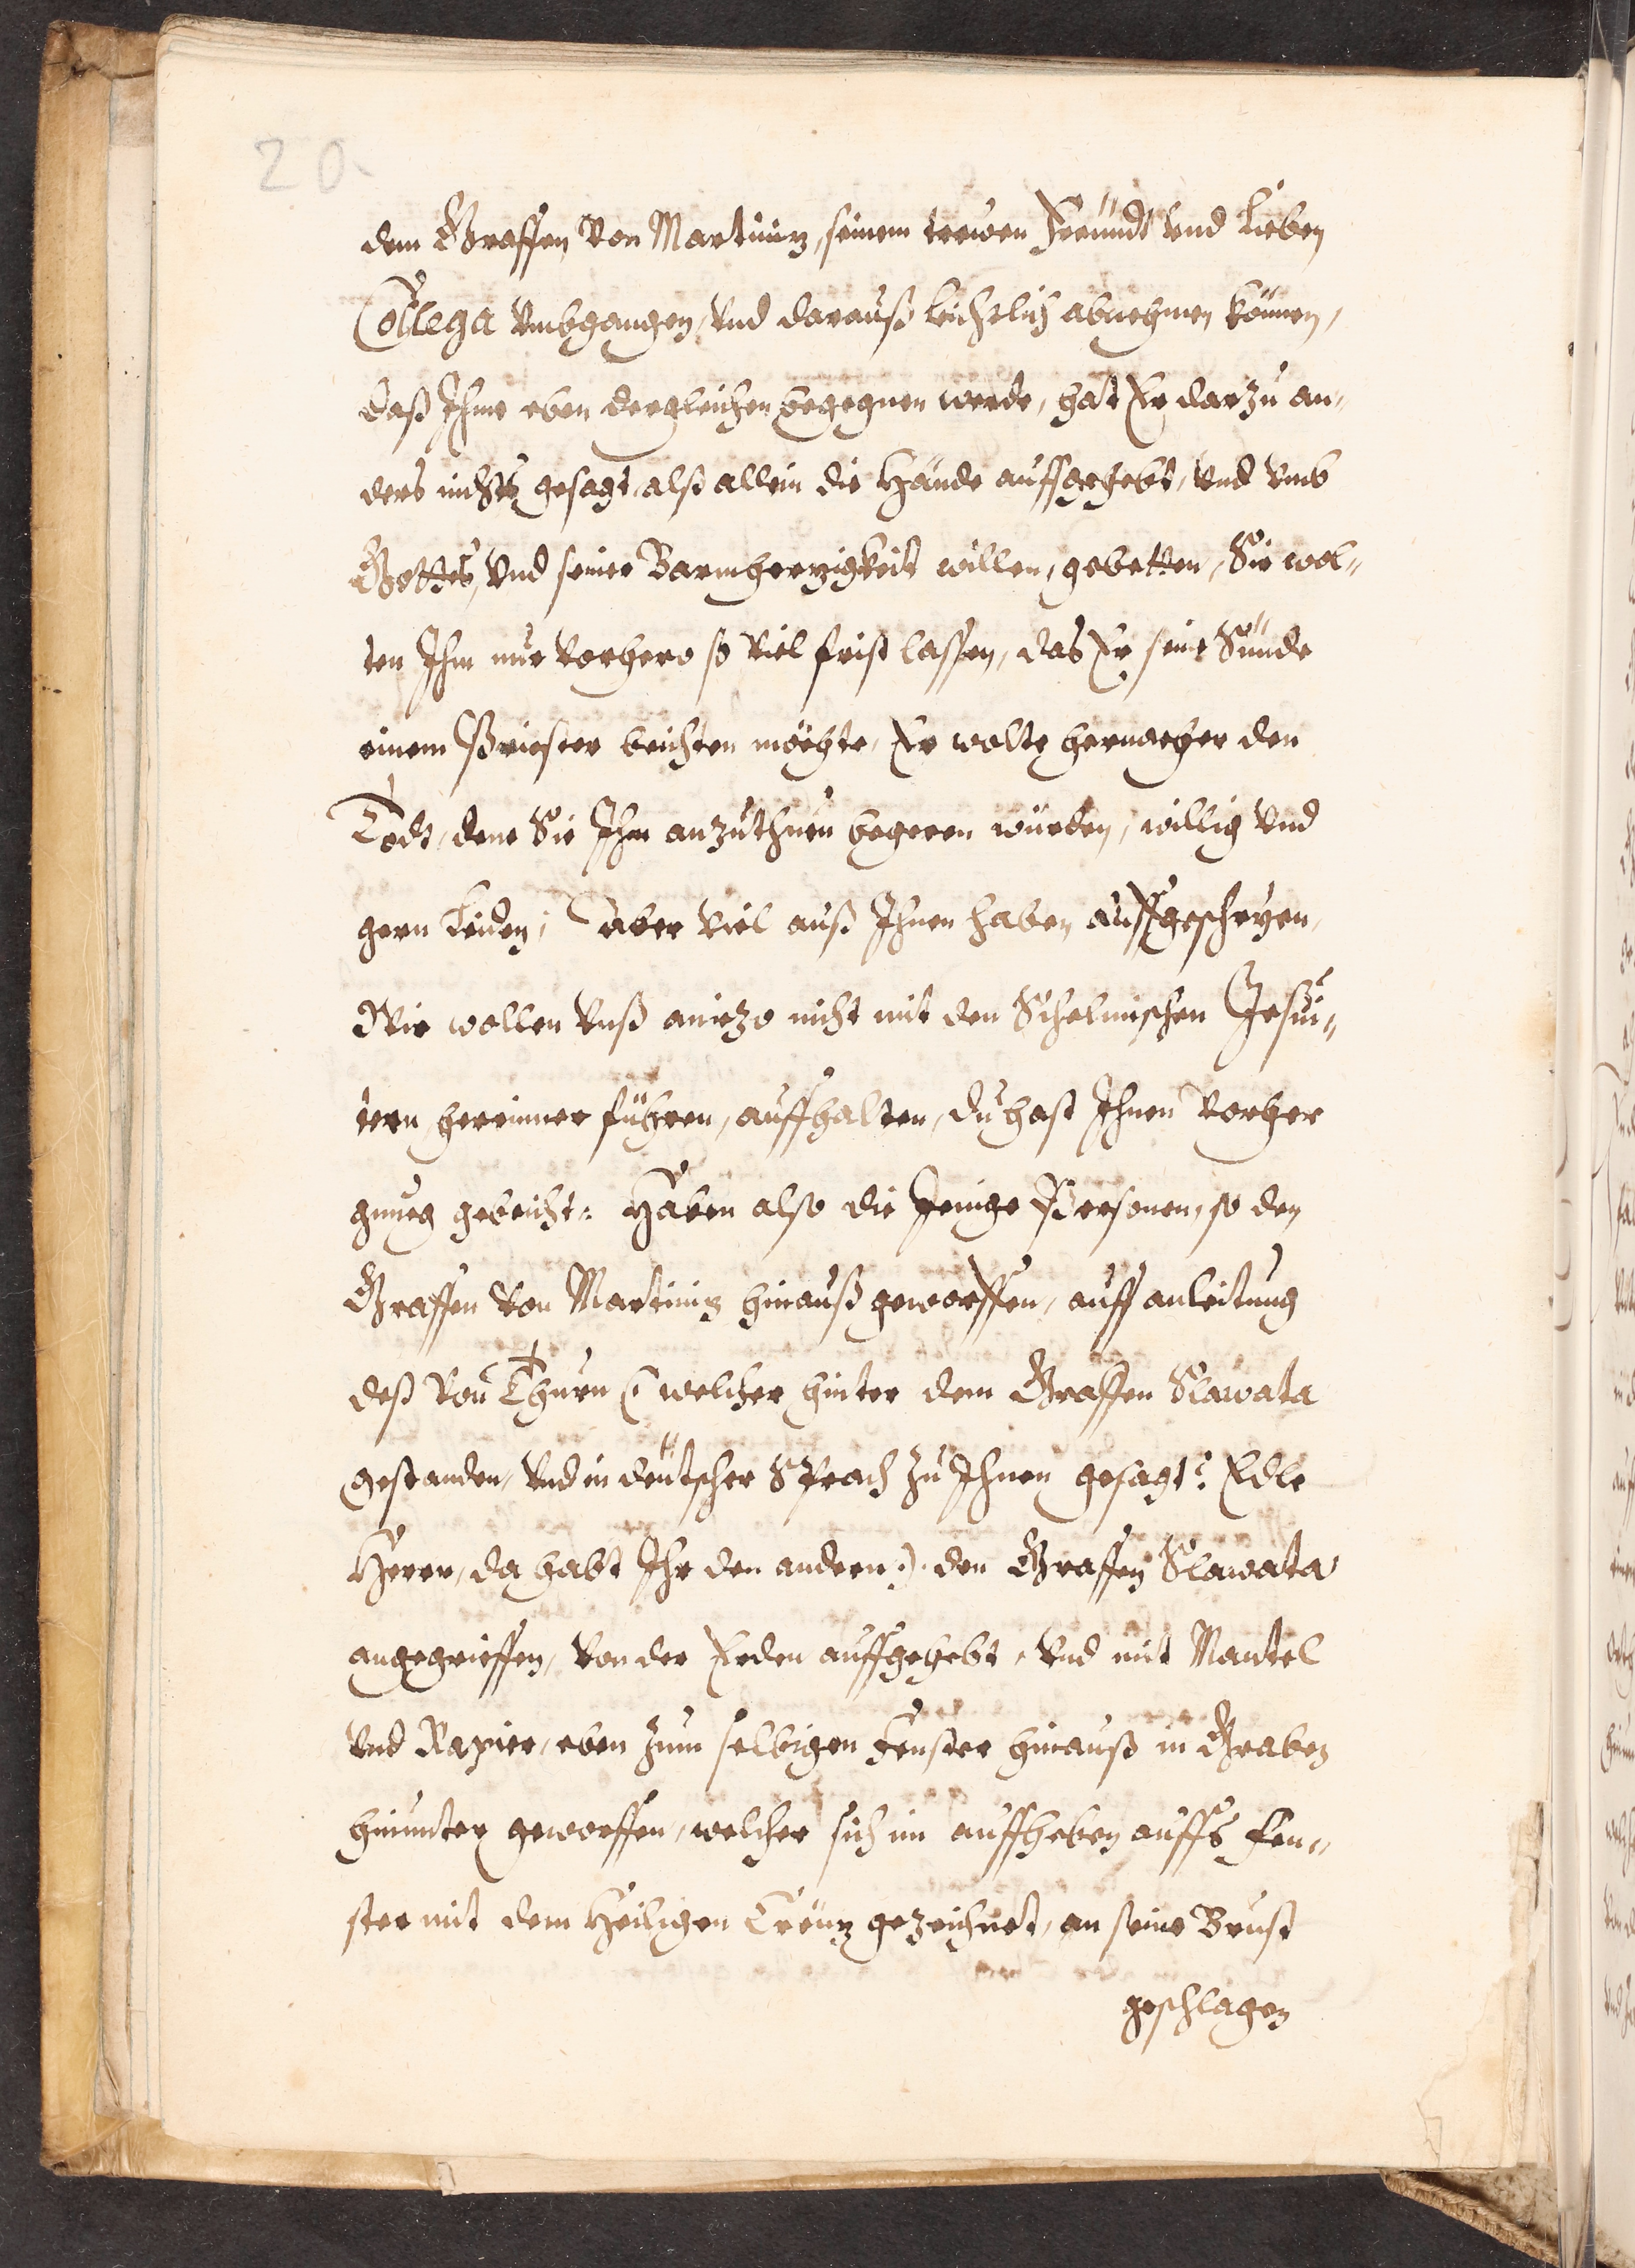 20
dem Graffen Von Martiniz, seinem trewen Freündt Vnd Lieben
Collega Vmbgangen, Vnd darauß leichtlich abnehmen können,
daß Ihme eben dergleichen begegnen werde, hat Er darzu an-
ders nichts gesagt, alß allein die Hände auffgehebt, Vnd Vmb
Gottes, Vnd seiner Barmherzigkeit willen, gebetten, Sie wol-
ten Ihm nur Vorhero so Viel frist lassen, das Er seine Sünde
einem Priester beichten möchte, Er wolte hernacher den
Todt, dene Sie Ihm anzuthuen begeren würden, willig Vnd
gern Leiden; aber Viel auß Ihnen haben auffgeschryen,
Wir wollen Vnß aniezo nicht mit den Schelmischen Jesui-
tern hereinner führen, auffhalten, du hast Ihnen Vorher
gnueg gebeicht: Haben also die Jenige Personen, so den
Graffen Von Martiniz hinauß geworffen, auff anleitung
deß Von Thurn (: welcher hinter dem Graffen Slawata
gestanden, Vnd in deütscher Sprach zu Ihnen gesagt: Edle
Herrn, da habt Ihr den andern:) den Graffen Slawata
angegrieffen, Von der Erden auffgehebt, Vnd mit Mantel
Vnd Rapier, eben zum selbigen Fenster hinauß in Graben
hinunter geworffen, welcher sich im auffheben auffs Fen-
ster mit dem Heiligen Creüz gezeichnet, an seine Brust
geschlagen